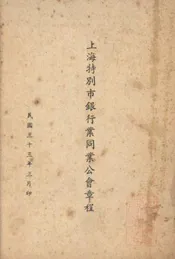 上海特別市銀行業同業公會章程
民國三十三年三月印